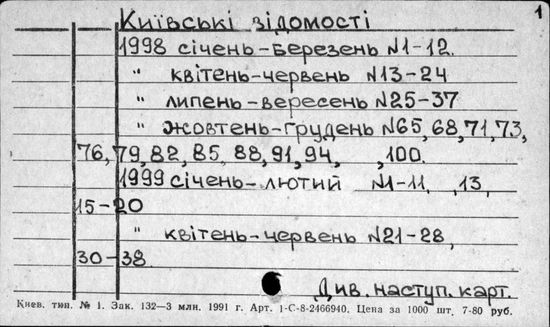 1
Київські відомості
1998 січень-Березень N1-12.
" квітень-червень N13-24
" липень-вересень N25-37
" жовтень-грудень N65,68,71,73,
76,79,82,85,88,91,94, ,100.
1999 січень-лютий N1-11, ,13,
15-20
" квітень-червень N21-28,
30-38
Див. наступ. карт.
Киев. тип. № 1. Зак. 132—3 млн. 1991 г. Арт. 1-С-8-2466940. Цена за 1000 шт. 7-80 руб.